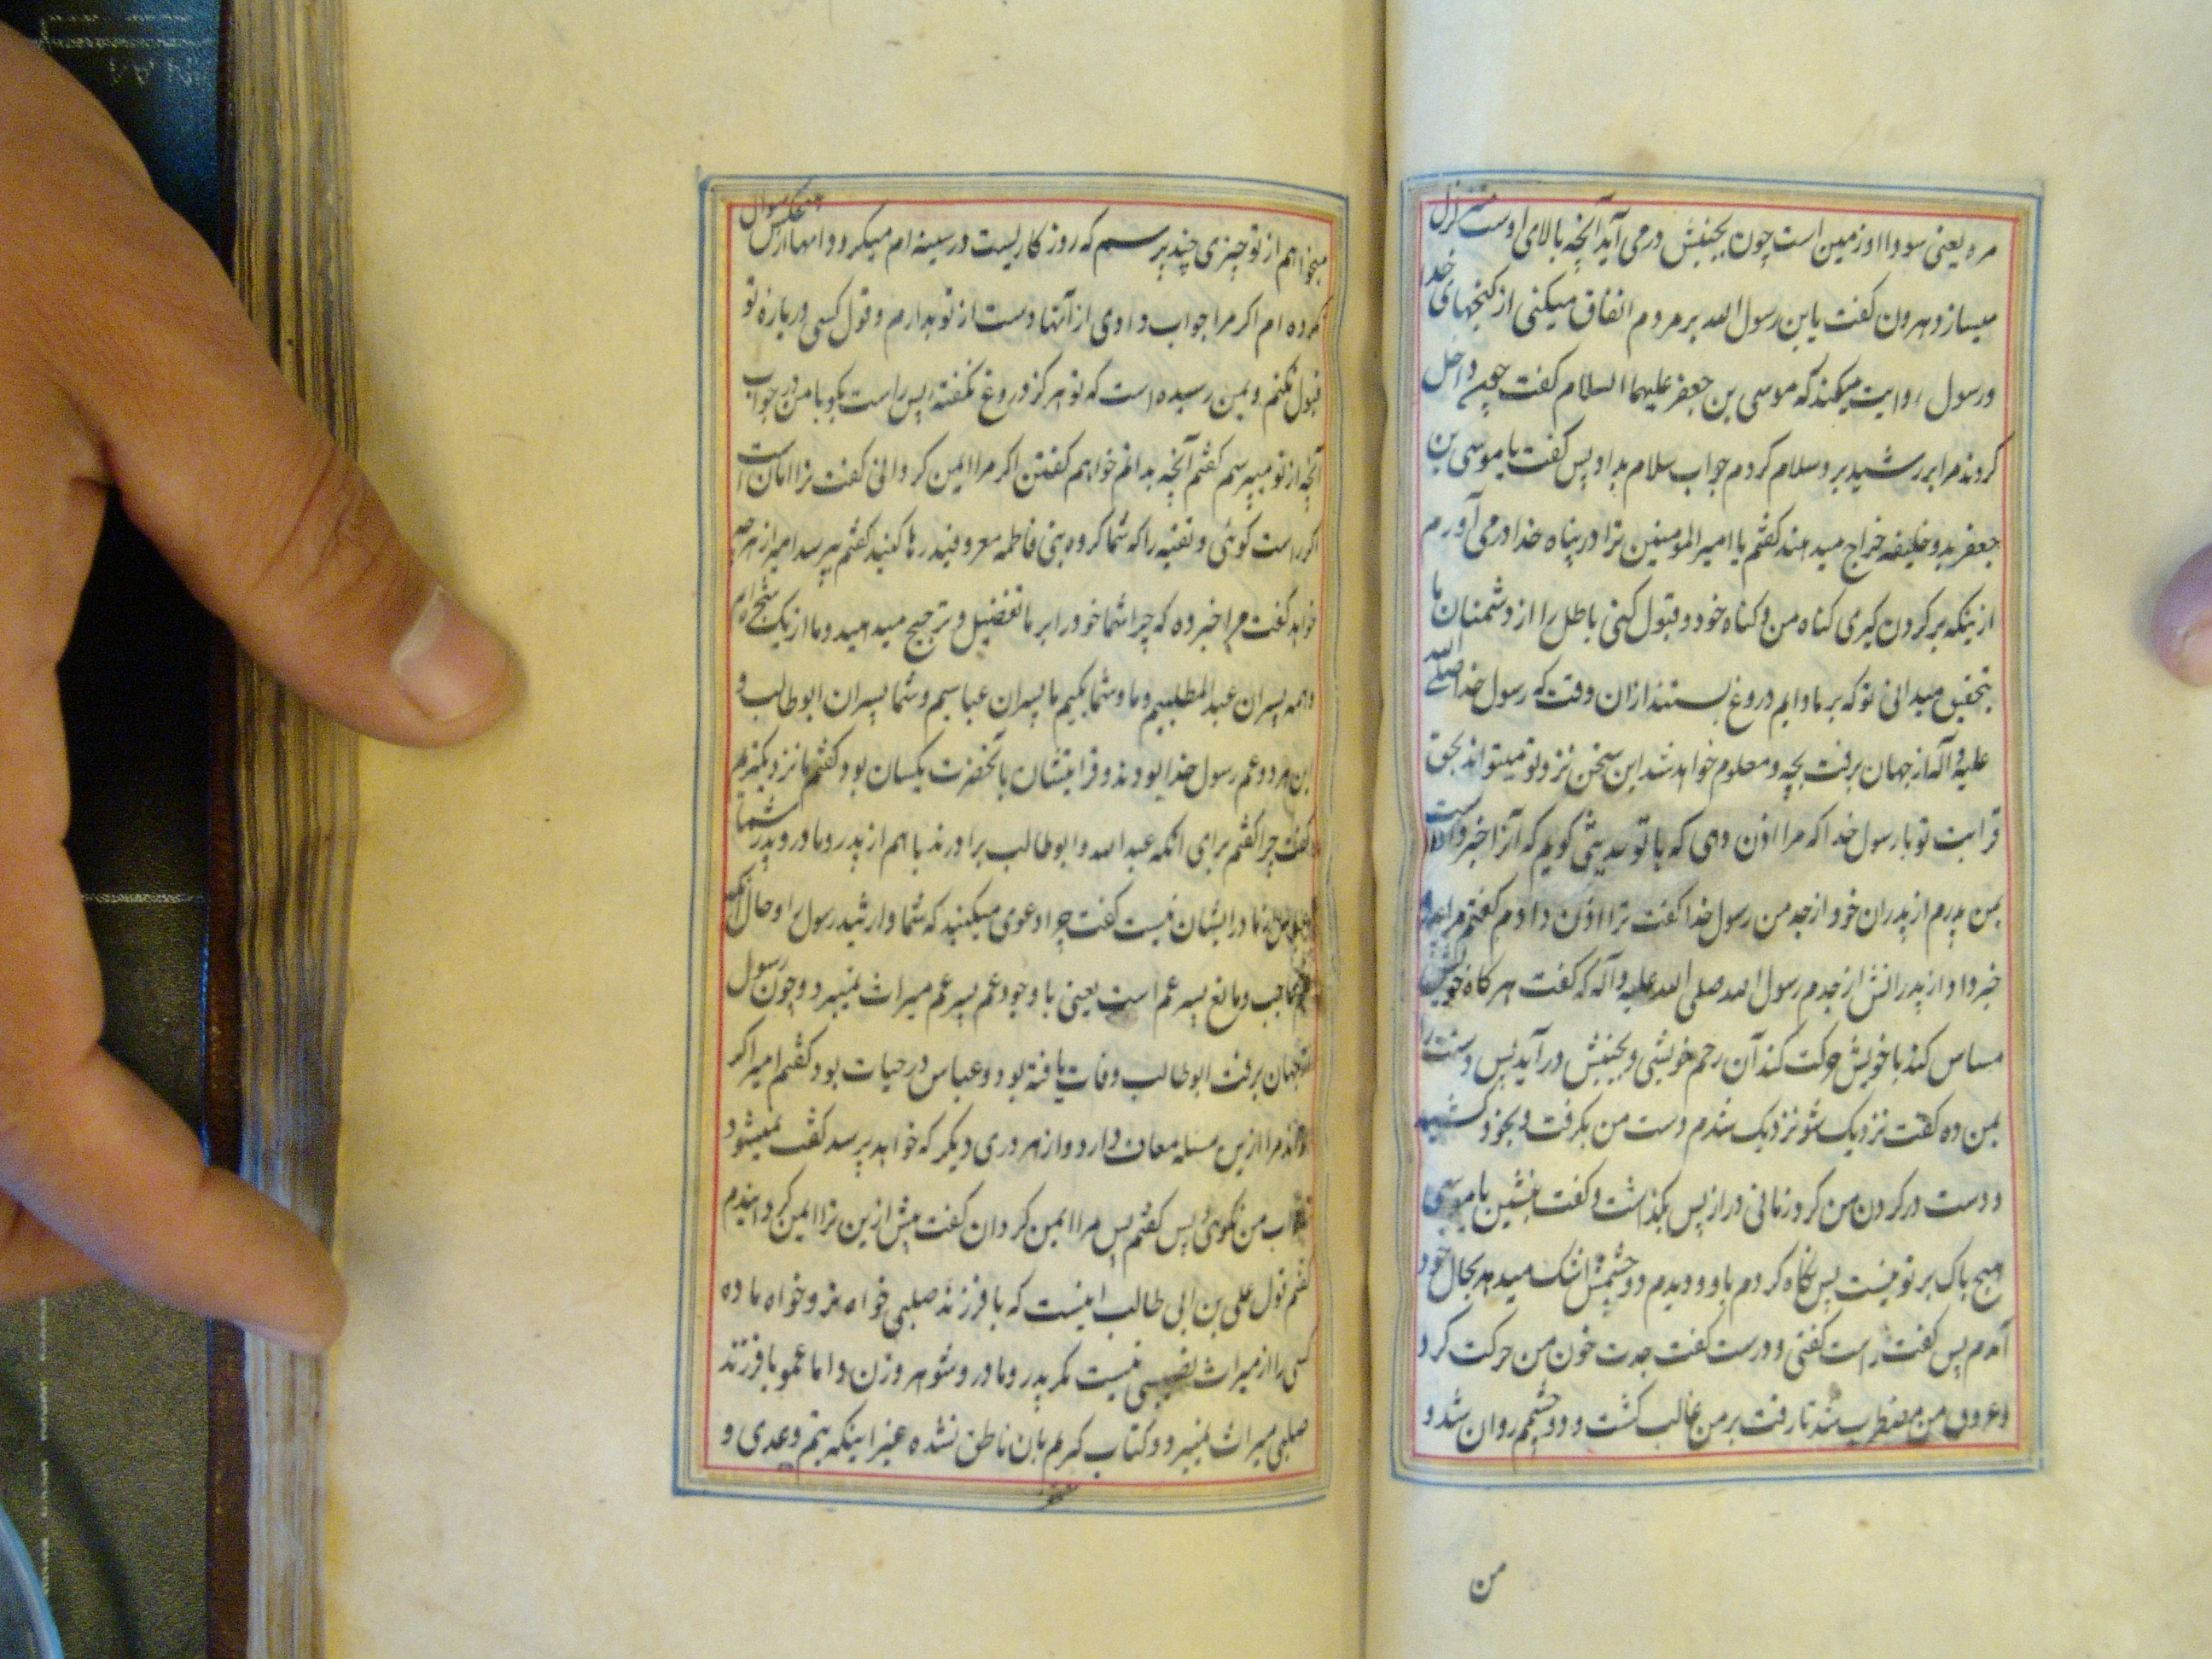 مره یعنی سودا او زمین است چون بجنبش در می آید آنچه بالای اوست متزلزل
میسازد و هرون کفت یابن رسول الله بر مردم انفاق میکنی از کنجهای خدا
و رسول روایت میکند که موسی بن جعفر علیهما السلام کفت چون داخل
کردند مرا بر رشید برو سلام کردم جواب سلام بداد پس کفت یا موسی بن
جعفر بدو خلیفه خراج میدهند کفتم یا امیر المومنین ترا در پناه خدا در می آورم
ازینکه بر کردن کیری کناه من و کناه خود و قبول کنی باطل را از دشمنان ما
بتحقیق میدانی تو که بر ما دایم دروغ بستند ازان وقت که رسول خدا صلی الله
علیه و آله از جهان برفت بچه و معلوم خواهد شد این سخن نزد تو میتواند بحق
قرابت تو با رسول خدا که مرا اذن دهی که با تو حدیثی کویم که آنرا خبر داده است
بمن پدرم از پدران خود از جد من رسول خدا کفت ترا اذن دادم کفتم مرا پدرم
خبر داد از پدرانش از جدم رسول الله صلی الله علیه و آله که کفت هر کاه خویش
مساس کند با خویش حرکت کند آن رحم خویشی و بجنبش در آید پس دست را
بمن ده کفت نزدیک شو نزدیک شدم دست من بکرفت و بخود کشید
و دست در کردن من کرد زمانی دراز پس بکذاشت و کفت بنشین یا موسی
هیچ باک بر تو نیست پس نکاه کردم باو و دیدم دو چشمش اشک میدهد بحال خود
آمدم پس کفت راست کفتی و درست کفت جدت خون من حرکت کرد
و عروق من مضطرب شد تا رقت بر من غالب کشت و دو چشمم روان شد و
من
میخواهم از تو چیزی چند پرسم که روز کاریست در سینه ام میکردد و انها از هیچکس سوال
نکرده ام اکر مرا جواب دادی از آنها دست از تو بدارم و قول کسی در باره تو
قبول نکنم و بمن رسیده است که تو هرکز دروغ نکفته پس راست بکو با من در جواب
آنچه از تو میپرسم کفتم آنچه بدانم خواهم کفتن اکر مرا ایمن کردانی کفت ترا امان است
اکر راست کوئی و تقیه را که شما کروه بنی فاطمه معروفید رها کنید کفتم بپرسد امیر از هر چه
خواهد کفت مرا خبر ده که چرا شما خود را بر ما تفضیل و ترجیح میدهید و ما از یک شجره ایم
و همه پسران عبد المطلبیم و ما و شما یکیم ما پسران عباسیم و شما پسران ابو طالب و
این هر دو عم رسول خدا بودند و قرابتشان بآنحضرت یکسان بود کفتم ما نزدیکتریم
کفت چرا کفتم برای انکه عبد الله و ابو طالب برادرند با هم از پدر و مادر و پدر شما
عباس از مادر ایشان نیست کفت چرا دعوی میکنید که شما وارثید رسول را و حال آنکه
عم حاجب و مانع پسر عم است یعنی با وجود عم پسر عم میراث نمیبرد و چون رسول
از جهان برفت ابو طالب وفات یافته بود و عباس در حیات بود کفتم امیر اکر
تواند مرا ازین مسئله معاف دارد و از هر دری دیکر که خواهد پرسد کفت نمیشود
تا جواب من نکوئی پس کفتم پس مرا ایمن کردان کفت پیش ازین ترا ایمن کردانیدم
کفتم قول علی بن ابی طالب اینست که با فرزند صلبی خواه نر و خواه ماده
کسی را از میراث نصیبی نیست مکر پدر و مادر و شوهر و زن و اما عمو با فرزند
صلبی میراث نمیبرد و کتاب کریم بان ناطق نشده غیر اینکه تیم و عدی و